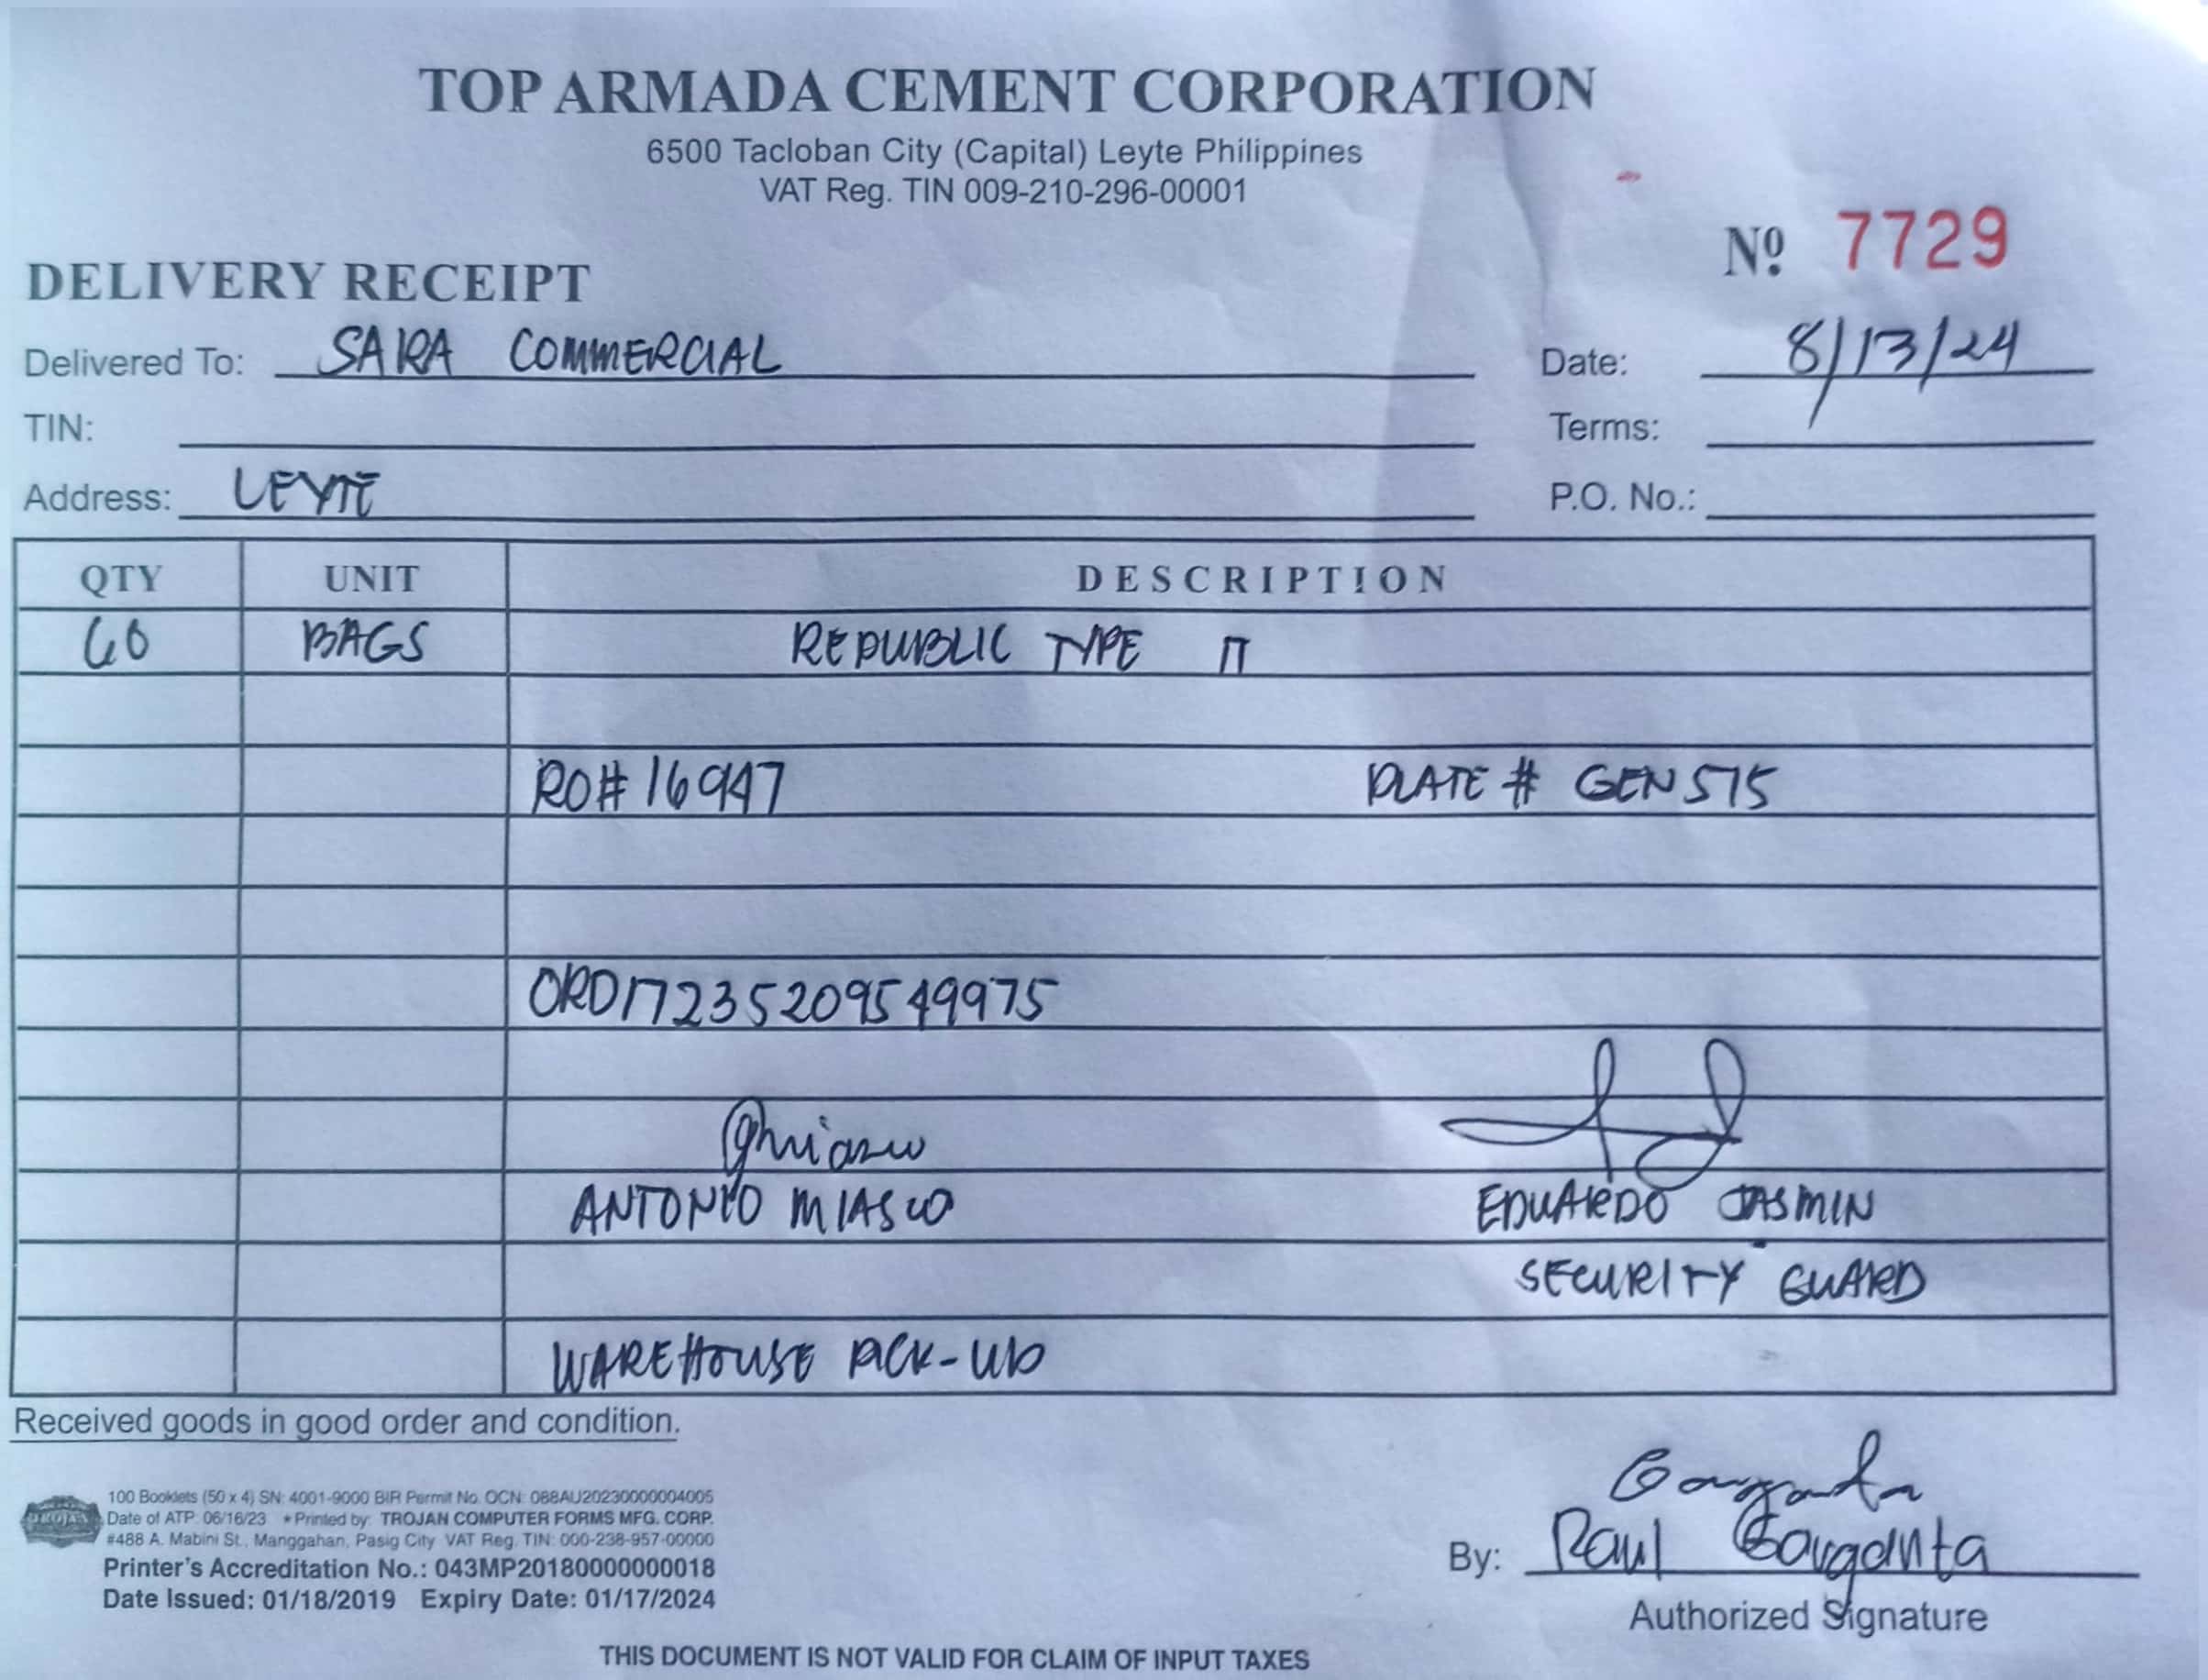 TOP ARMADA CEMENT CORPORATION
6500 Tacloban City (Capital) Leyte Philippines
VAT Reg. TIN 009-210-296-00001
Nº 7729
DELIVERY RECEIPT
Delivered To: SARA COMMERCIAL Date: 8/13/24
TIN: Terms:
Address: LEYTE P.O. No.:
QTY UNIT DESCRIPTION
60 BAGS REPUBLIC TYPE II
RO# 16947 PLATE # GEN 575
ORD17235209549975
ANTONIO MIASCO EDUARDO JASMIN
SECURITY GUARD
WAREHOUSE PICK-UP
Received goods in good order and condition.
TROJAN
100 Booklets (50 x 4) SN: 4001-9000 BIR Permit No. OCN: 088AU20230000004005
Date of ATP: 06/16/23 * Printed by: TROJAN COMPUTER FORMS MFG. CORP.
#488 A. Mabini St., Manggahan, Pasig City VAT Reg. TIN: 000-238-957-00000
Printer's Accreditation No.: 043MP20180000000018
Date Issued: 01/18/2019 Expiry Date: 01/17/2024
By: Raul Garganta
Authorized Signature
THIS DOCUMENT IS NOT VALID FOR CLAIM OF INPUT TAXES